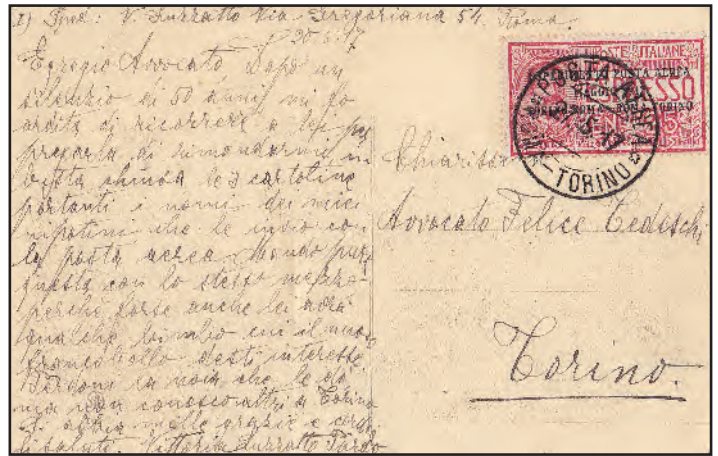 1) Sped: V. Luzzatto Via Gregoriana 54. Roma.
20-5-17
Egregio Avvocato dopo un
silenzio di 50 anni mi fo
ardita di ricorrere a lei per
pregarla di rimandarmi in
busta chiusa le 3 cartoline
portanti i nomi dei miei
nipotini che le invio con
la posta aerea. Mando pure
questa con lo stesso mezzo
perchè forse anche lei avrà
qualche bimbo cui il nuovo
francobollo desti interesse
Perdoni la noia che le do
ma non conosco altri a Torino
Si abbia mille grazie e cordia
li saluti. Vittoria Luzzatto Pardo
POSTE ITALIANE
ESPERIMENTO POSTA AEREA
MAGGIO 1917
TORINO-ROMA · ROMA-TORINO
POSTA AEREA
5-17
TORINO
Avvocato Felice Tedeschi
Torino.